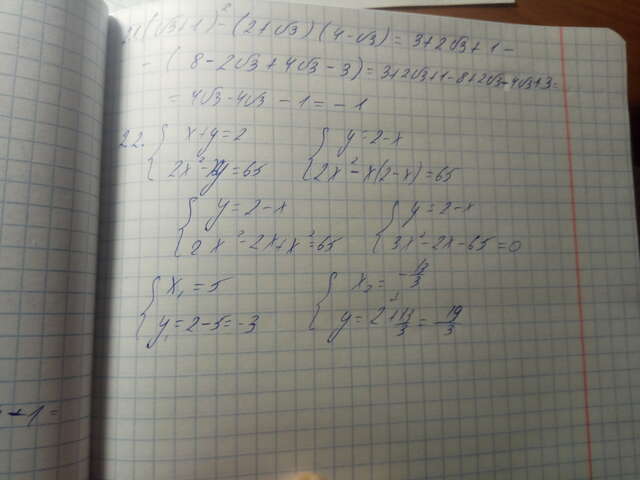 21(√3+1)² - (2+√3)(4-√3) = 3+2√3+1 -
- (8-2√3+4√3-3) = 3+2√3+1-8+2√3-4√3+3=
= 4√3-4√3 - 1 = - 1
22. { x+y=2 { y=2-x
2x²-xy=65 2x²-x(2-x)=65
{ y=2-x { y=2-x
2x²-2x+x²=65 3x²-2x-65=0
{ x₁=5 { x₂= -13/3
y₁=2-5=-3 y=2+13/3=19/3
+1=